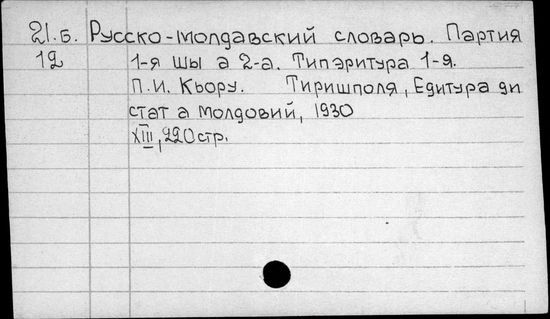 21.Б. Русско-молдавский словарь. Партия
12 1-я шы а 2-а. Типэритура 1-я.
П.И. Кьору. Тиришполя, Едитура ди
стат а Молдовий, 1930
XIII, 220 стр.